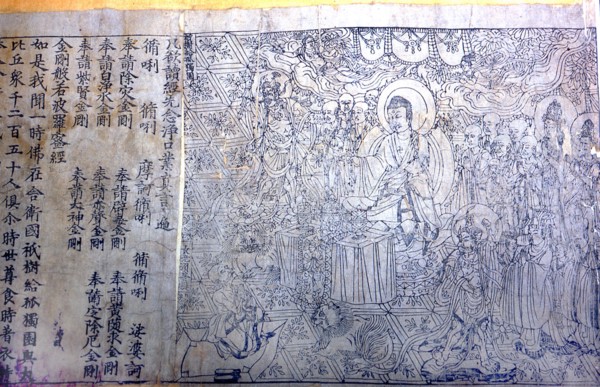 凡欲讀經先念淨口業真言一遍
脩唎 脩唎 摩訶脩唎 脩脩唎 娑婆訶
奉請除災金剛 奉請辟毒金剛 奉請黃隨求金剛
奉請白淨水金剛 奉請赤聲金剛 奉請定除厄金剛
奉請紫賢金剛 奉請大神金剛
金剛般若波羅蜜經
如是我聞一時佛在舍衛國祇樹給孤獨園與
比丘眾千二百五十人俱尒時世尊食時著衣